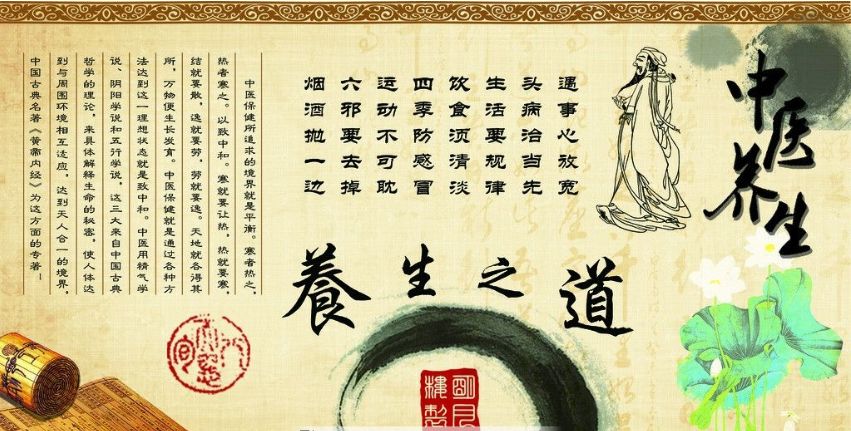 中医养生
遇事心放宽
头病治当先
生活要规律
饮食须清淡
四季防感冒
运动不可耽
六邪要去掉
烟酒抛一边
養生之道
中医保健所追求的境界就是平衡。寒者热之,
热者寒之。以致中和。寒就要让热,热就要寒,
结就要散,逸就要劳,劳就要逸。天地就各得其
所,万物便生长发育。中医保健就是通过各种方
法达到这一理想状态就是致中和。中医用精气学
说、阴阳学说和五行学说,这三大来自中国古典
哲学的理论,来具体解释生命的秘密,使人体达
到与周围环境相互适应,达到天人合一的境界,
中国古典名著《黄帝内经》为这方面的专著—